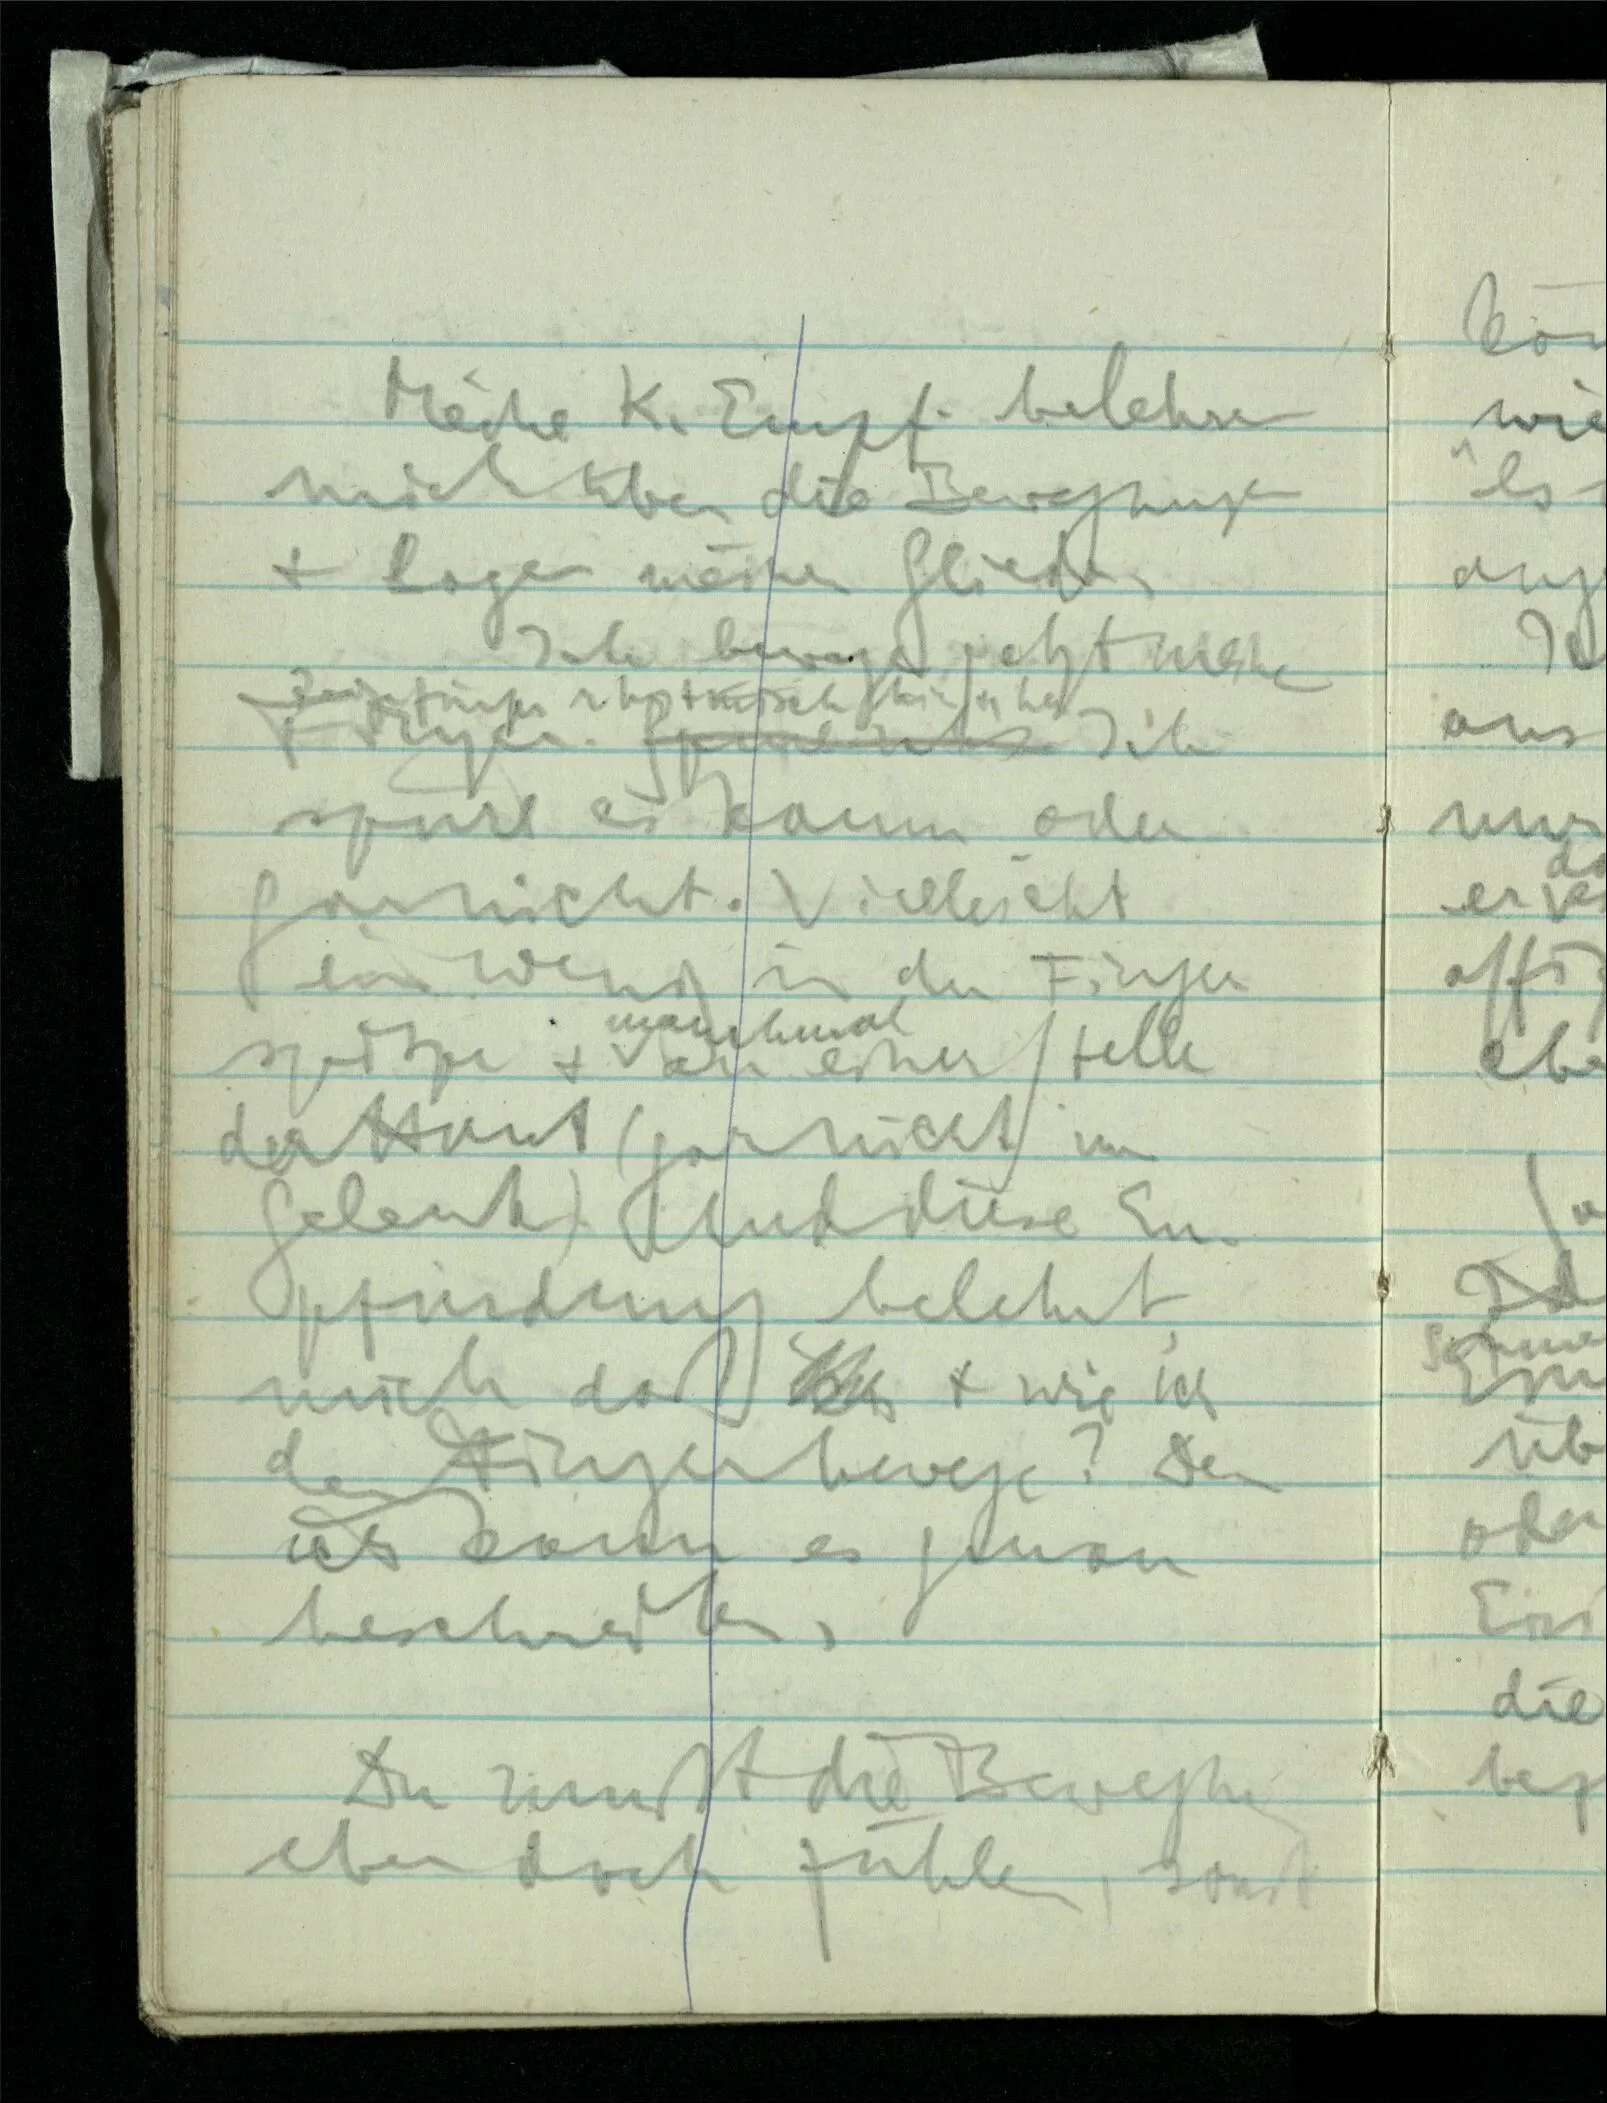 Meine K. Empf. belehren
mich über die Bewegungen
+ Lagen meiner Glieder.
Ich bewege jetzt meine
Zeigefinger
Finger. Spüre Ich
spüre es kaum oder
garnicht. Vielleicht
ein wenig in der Finger
manchmal
spitze + an einer Stelle
der Haut (garnicht im
Gelenk). Und diese Em-
pfindung belehrt
mich daß + wie ich
den Finger bewege? Den
ich kann es genau
beschreiben.
Du mußt die Bewegung
eben doch fühlen, sonst
kön
wie
"Es
ang
Ich
aus
nur
da
er
affi
ebe
üb
oder
die